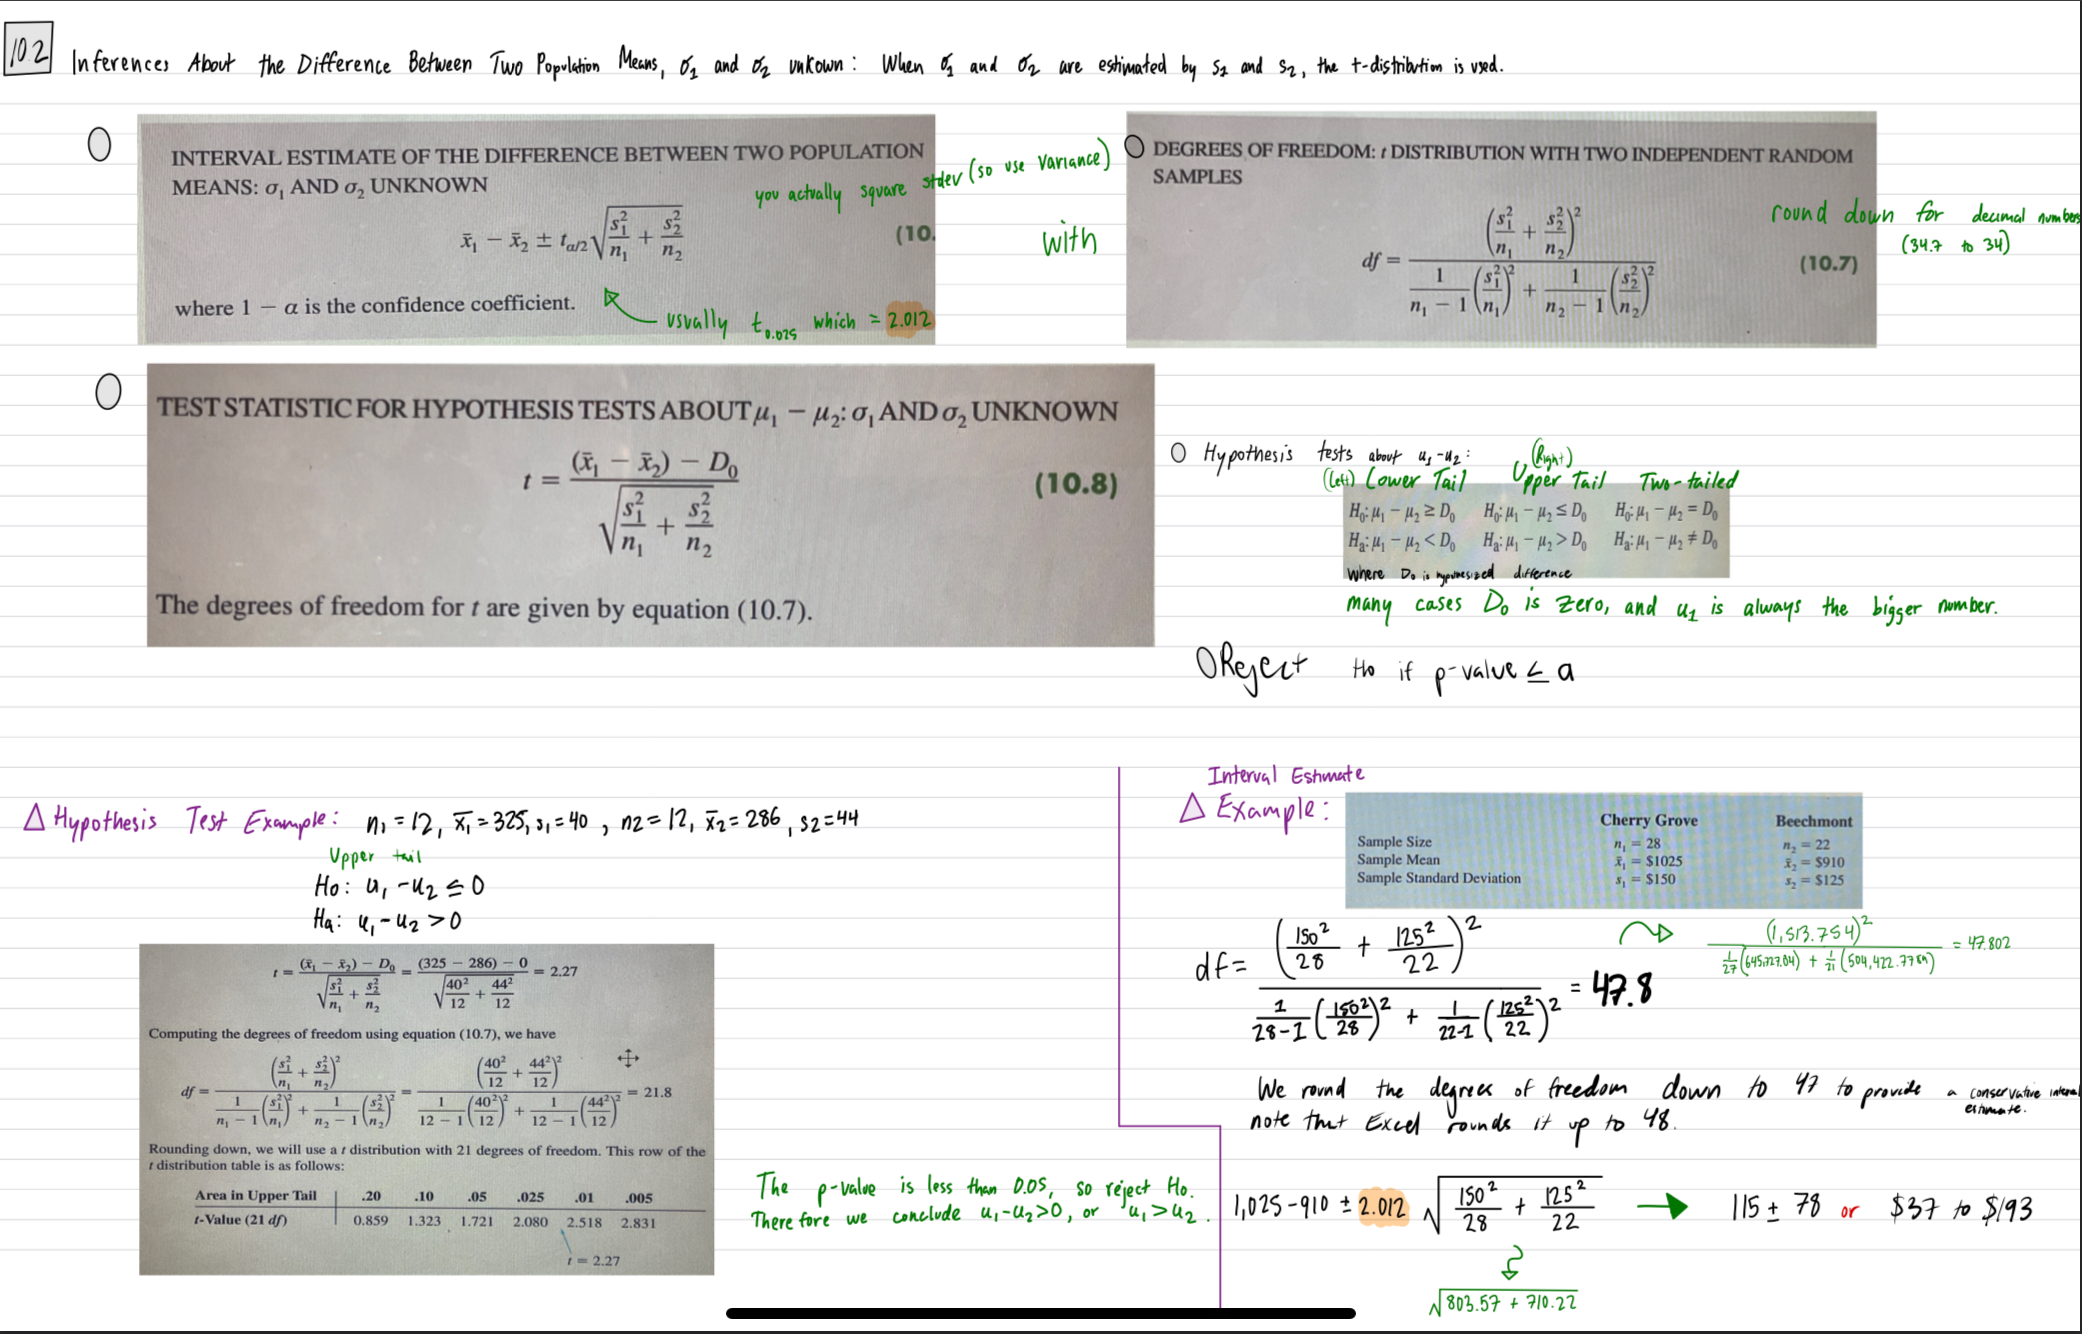 10.2 Inferences About the Difference Between Two Population Means, σ1 and σ2 unkown: When σ1 and σ2 are estimated by s1 and s2, the t-distribution is used.
INTERVAL ESTIMATE OF THE DIFFERENCE BETWEEN TWO POPULATION
MEANS: σ1 AND σ2 UNKNOWN
you actually square stdev (so use variance)
x̄1 − x̄2 ± tα/2 √(s1²/n1 + s2²/n2) (10.
where 1 − α is the confidence coefficient.
usually t0.025 which = 2.012
with
DEGREES OF FREEDOM: t DISTRIBUTION WITH TWO INDEPENDENT RANDOM
SAMPLES
df = (s1²/n1 + s2²/n2)² / (1/(n1 − 1) (s1²/n1)² + 1/(n2 − 1) (s2²/n2)²) (10.7)
round down for decimal numbers
(34.7 to 34)
TEST STATISTIC FOR HYPOTHESIS TESTS ABOUT μ1 − μ2: σ1 AND σ2 UNKNOWN
t = ((x̄1 − x̄2) − D0) / √(s1²/n1 + s2²/n2) (10.8)
The degrees of freedom for t are given by equation (10.7).
Hypothesis tests about u1-u2:
(Left) Lower Tail (Right) Upper Tail Two-tailed
H0: μ1 − μ2 ≥ D0 H0: μ1 − μ2 ≤ D0 H0: μ1 − μ2 = D0
Ha: μ1 − μ2 < D0 Ha: μ1 − μ2 > D0 Ha: μ1 − μ2 ≠ D0
Where D0 is hypothesized difference
many cases D0 is zero, and u1 is always the bigger number.
Reject Ho if p-value ≤ a
Hypothesis Test Example: n1 = 12, x̄1 = 325, s1 = 40, n2 = 12, x̄2 = 286, s2 = 44
Upper tail
Ho: u1 - u2 ≤ 0
Ha: u1 - u2 > 0
t = ((x̄1 − x̄2) − D0) / √(s1²/n1 + s2²/n2) = ((325 − 286) − 0) / √(40²/12 + 44²/12) = 2.27
Computing the degrees of freedom using equation (10.7), we have
df = (s1²/n1 + s2²/n2)² / (1/(n1 − 1) (s1²/n1)² + 1/(n2 − 1) (s2²/n2)²) = (40²/12 + 44²/12)² / (1/(12 − 1) (40²/12)² + 1/(12 − 1) (44²/12)²) = 21.8
Rounding down, we will use a t distribution with 21 degrees of freedom. This row of the
t distribution table is as follows:
Area in Upper Tail .20 .10 .05 .025 .01 .005
t-Value (21 df) 0.859 1.323 1.721 2.080 2.518 2.831
t = 2.27
The p-value is less than 0.05, so reject Ho.
Therefore we conclude u1-u2>0, or u1>u2.
Interval Estimate
Example:
Cherry Grove Beechmont
Sample Size n1 = 28 n2 = 22
Sample Mean x̄1 = $1025 x̄2 = $910
Sample Standard Deviation s1 = $150 s2 = $125
df = (150²/28 + 125²/22)² / (1/(28-1) (150²/28)² + 1/(22-1) (125²/22)²) = 47.8
(1,513.754)² / (1/27 (645,727.04) + 1/21 (504,422.7789)) = 47.802
We round the degrees of freedom down to 47 to provide a conservative interval estimate.
note that Excel rounds it up to 48.
1,025-910 ± 2.012 √(150²/28 + 125²/22) → 115 ± 78 or $37 to $193
√(803.57 + 710.22)